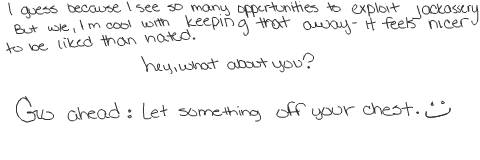 I guess because I see so many opportunities to exploit jackassery
But w/e, I'm cool with keeping that away - it feels nicer
to be liked than hated.
hey, what about you?
Go ahead: Let something off your chest. :)